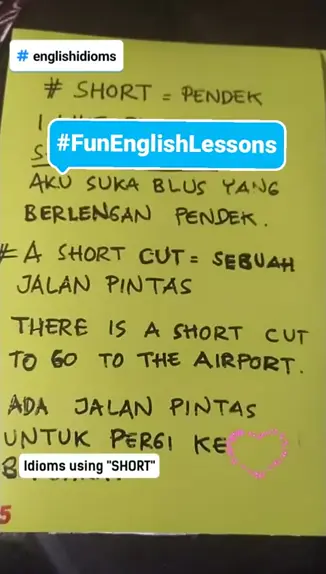 # englishidioms
# SHORT = PENDEK
I
#FunEnglishLessons
AKU SUKA BLUS YANG
BERLENGAN PENDEK.
# A SHORT CUT = SEBUAH
JALAN PINTAS
THERE IS A SHORT CUT
TO GO TO THE AIRPORT.
ADA JALAN PINTAS
UNTUK PERGI KE
Idioms using "SHORT"
5